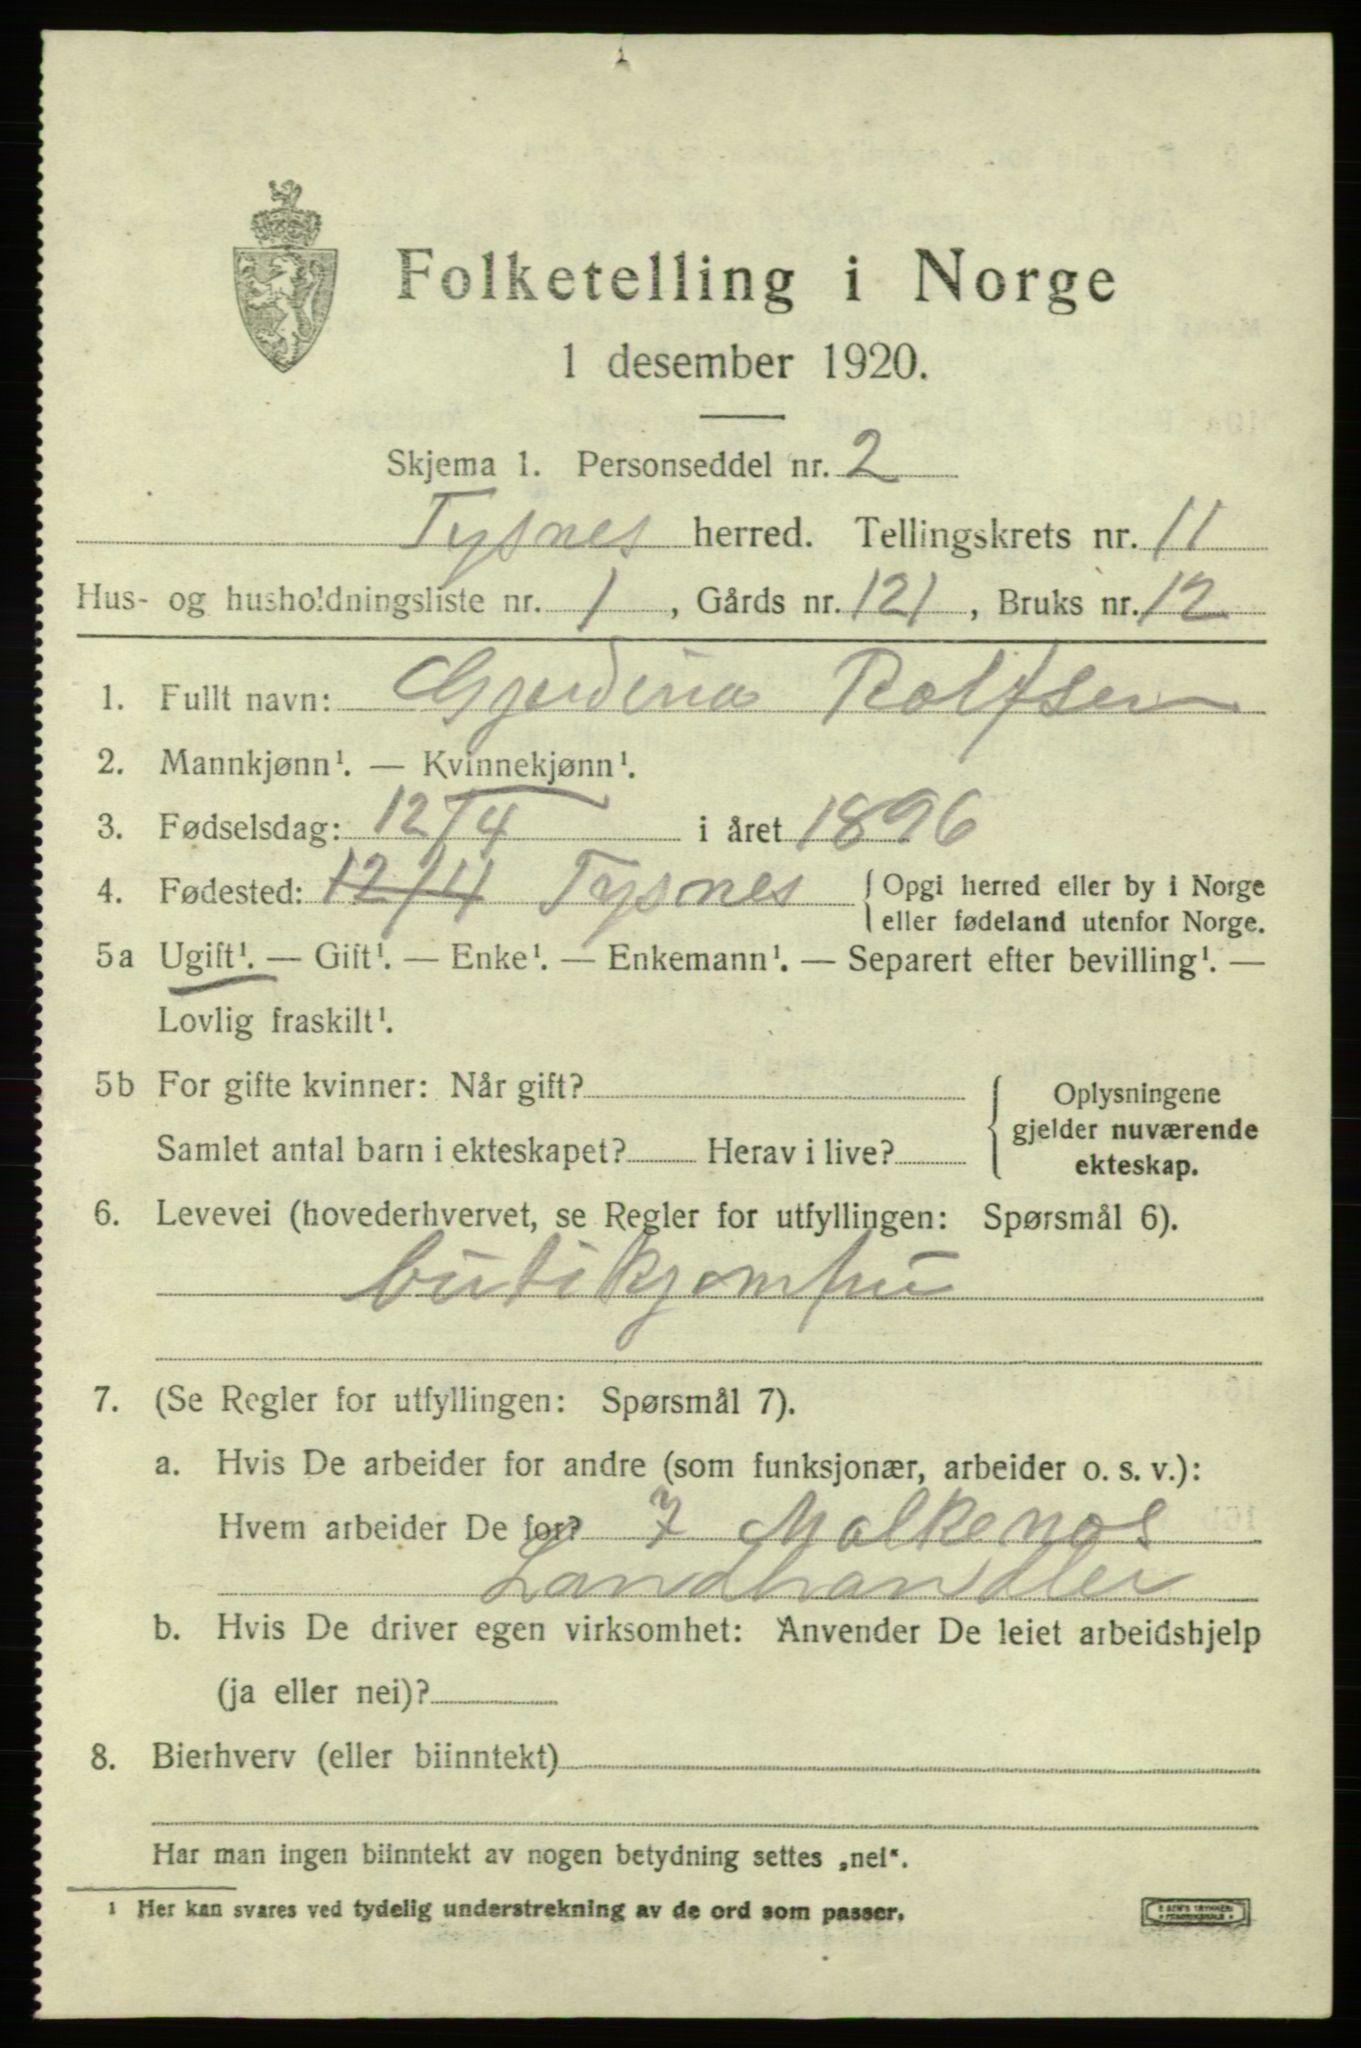 Folketelling i Norge
1 desember 1920.
Skjema 1. Personseddel nr. 2
Tysnes herred. Tellingskrets nr. 11
Hus- og husholdningsliste nr. 1, Gårds nr. 121, Bruks nr. 12
1. Fullt navn: Gjerdina Rolfsen
2. Mannkjønn¹. — Kvinnekjønn¹.
3. Fødselsdag: 12/4 i året 1896
4. Fødested: 12/4 Tysnes { Opgi herred eller by i Norge
eller fødeland utenfor Norge.
5a Ugift¹. — Gift¹. — Enke¹. — Enkemann¹. — Separert efter bevilling¹. —
Lovlig fraskilt¹.
5b For gifte kvinner: Når gift? { Oplysningene
gjelder nuværende
Samlet antal barn i ekteskapet? Herav i live? ekteskap.
6. Levevei (hovederhvervet, se Regler for utfyllingen: Spørsmål 6).
butikjomfru
7. (Se Regler for utfyllingen: Spørsmål 7).
a. Hvis De arbeider for andre (som funksjonær, arbeider o. s. v.):
Hvem arbeider De for? Malkenes
Landhandler
b. Hvis De driver egen virksomhet: Anvender De leiet arbeidshjelp
(ja eller nei)?
8. Bierhverv (eller biinntekt)
Har man ingen biinntekt av nogen betydning settes „nei“.
¹ Her kan svares ved tydelig understrekning av de ord som passer.